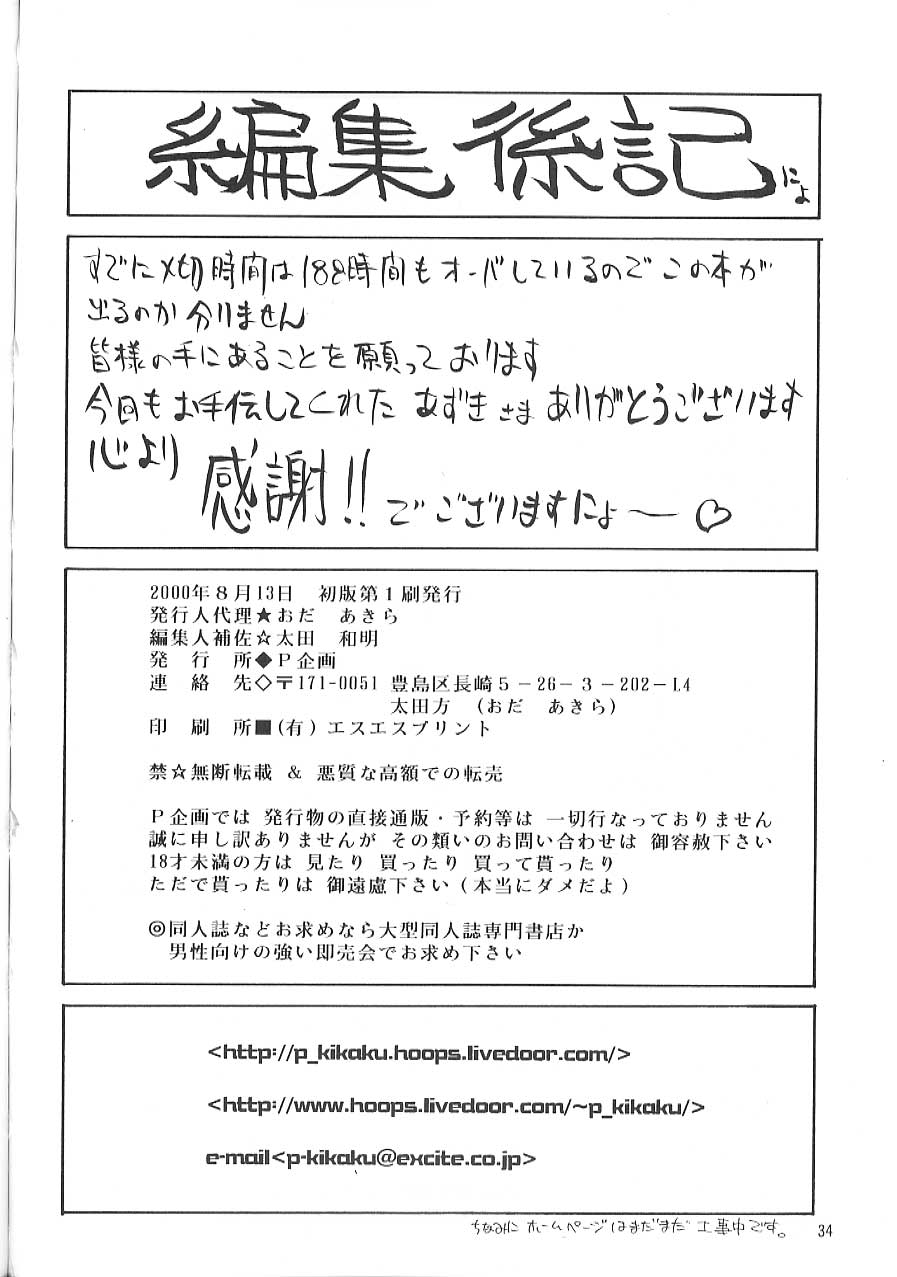 編集後記にょ
すでに〆切時間は188時間もオーバしているのでこの本が
出るのか分りません
皆様の手にあることを願っております
今回もお手伝してくれたあずきさまありがとうございます
心より
感謝!!でございますにょ〜♡
2000年8月13日 初版第1刷発行
発行人代理★おだ あきら
編集人補佐☆太田 和明
発 行 所◆P企画
連 絡 先◇〒171-0051 豊島区長崎5-26-3-202-L4
太田方 (おだ あきら)
印 刷 所■(有)エスエスプリント
禁☆無断転載 & 悪質な高額での転売
P企画では 発行物の直接通販・予約等は 一切行なっておりません
誠に申し訳ありませんが その類いのお問い合わせは 御容赦下さい
18才未満の方は 見たり 買ったり 買って貰ったり
ただで貰ったりは 御遠慮下さい(本当にダメだよ)
◎同人誌などお求めなら大型同人誌専門書店か
男性向けの強い即売会でお求め下さい
<http://p_kikaku.hoops.livedoor.com/>
<http://www.hoops.livedoor.com/~p_kikaku/>
e-mail<p-kikaku@excite.co.jp>
ちなみに ホームページはまだまだ 工事中です。
34